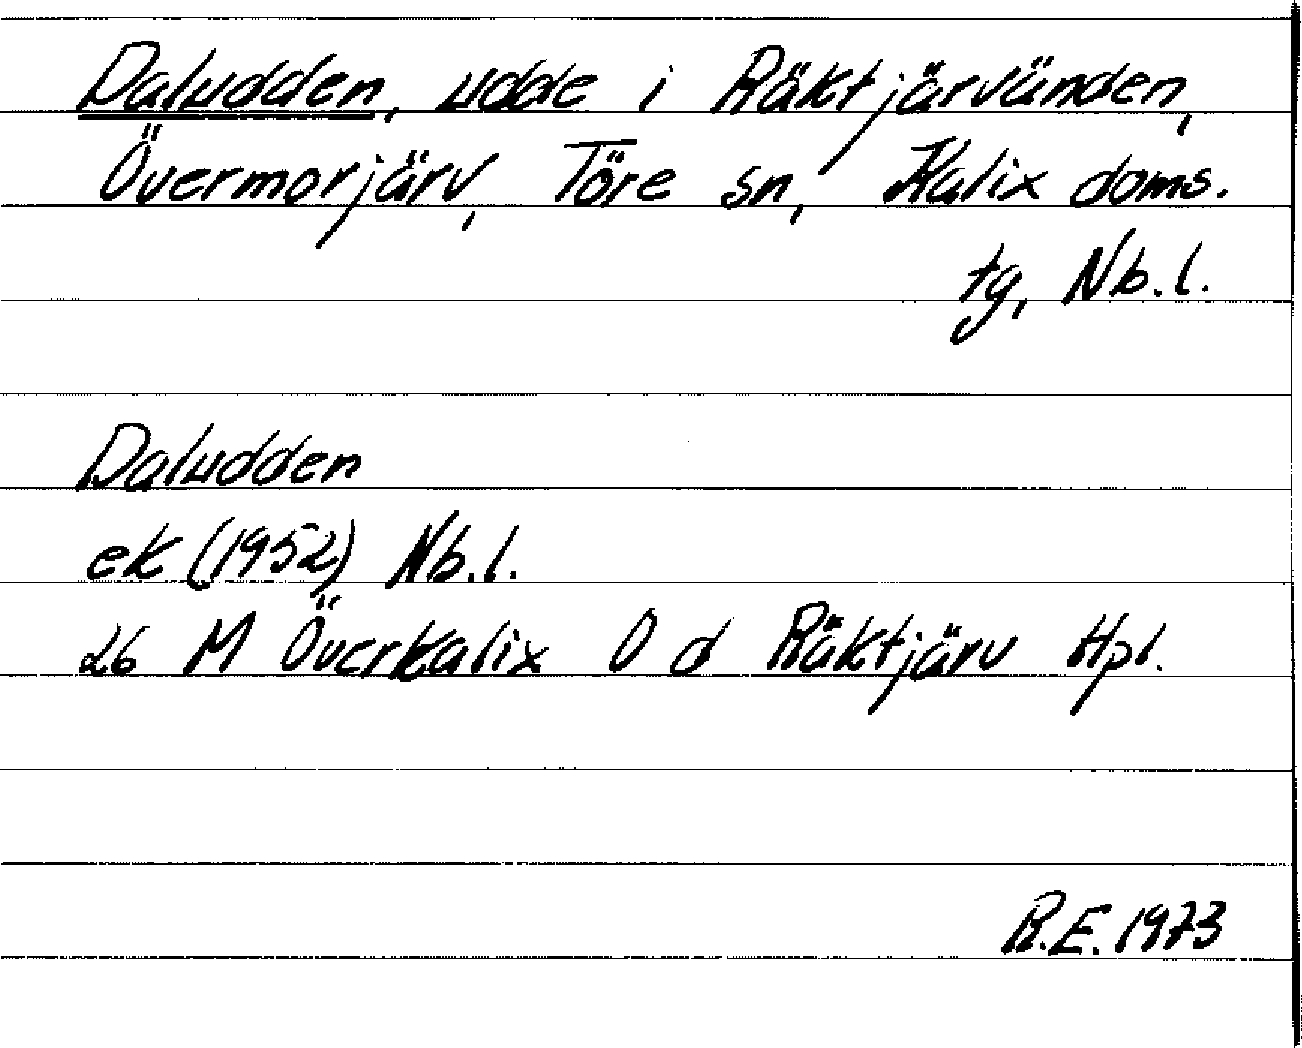 Daludden, udde i Räktjärvänden,
Övermorjärv, Töre sn, Kalix doms.
tg, Nb.l.
Daludden
ek (1952) Nb.l.
26 M Överkalix O d Räktjärv Hpl.
R.E. 1973